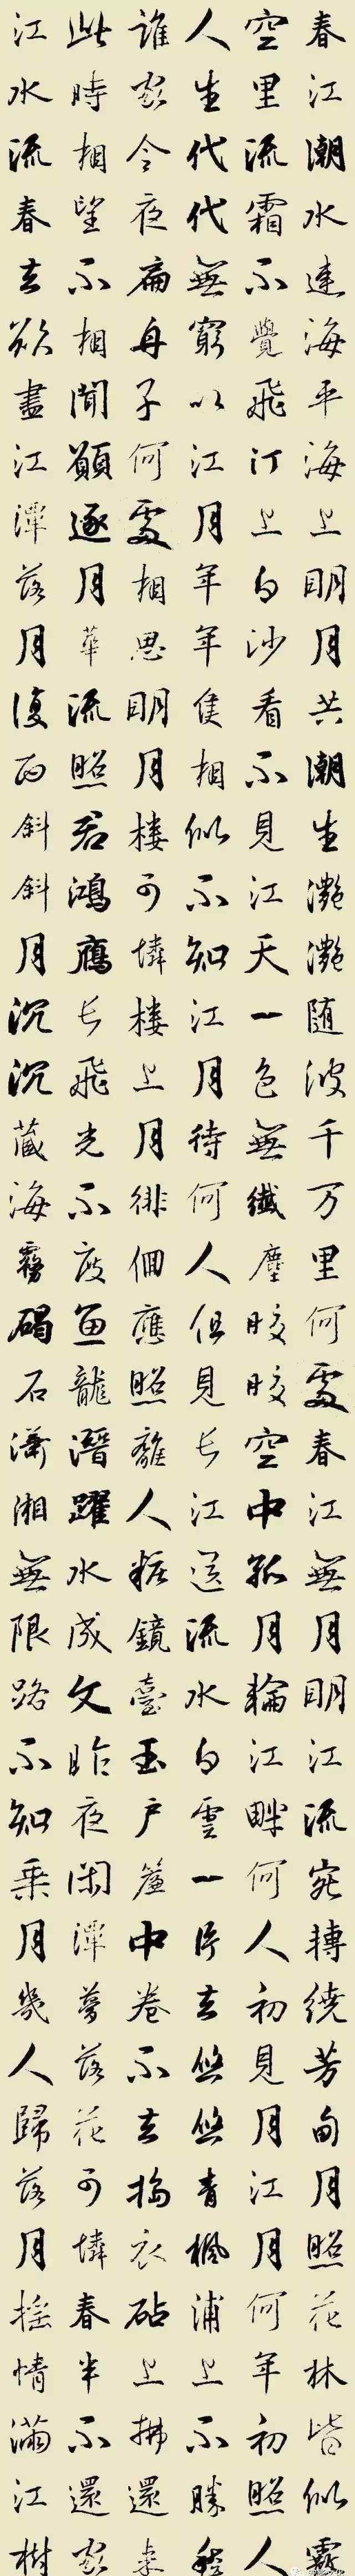 春江潮水連海平海上明月共潮生灩灩随波千万里何處春江無月明江流宛轉繞芳甸月照花林皆似霰
空里流霜不覺飛汀上白沙看不見江天一色無纖塵皎皎空中孤月輪江畔何人初見月江月何年初照人
人生代代無窮以江月年年隻相似不知江月待何人但見长江送流水白雲一片去悠悠青楓浦上不勝愁
誰家今夜扁舟子何處相思明月樓可憐樓上月徘徊應照離人粧鏡臺玉户簾中卷不去搗衣砧上拂還来
此時相望不相聞願逐月華流照君鴻鴈长飛光不度魚龍潛躍水成文昨夜閑潭夢落花可憐春半不還家
江水流春去欲盡江潭落月復西斜斜月沉沉藏海霧碣石瀟湘無限路不知乘月幾人歸落月摇情滿江樹